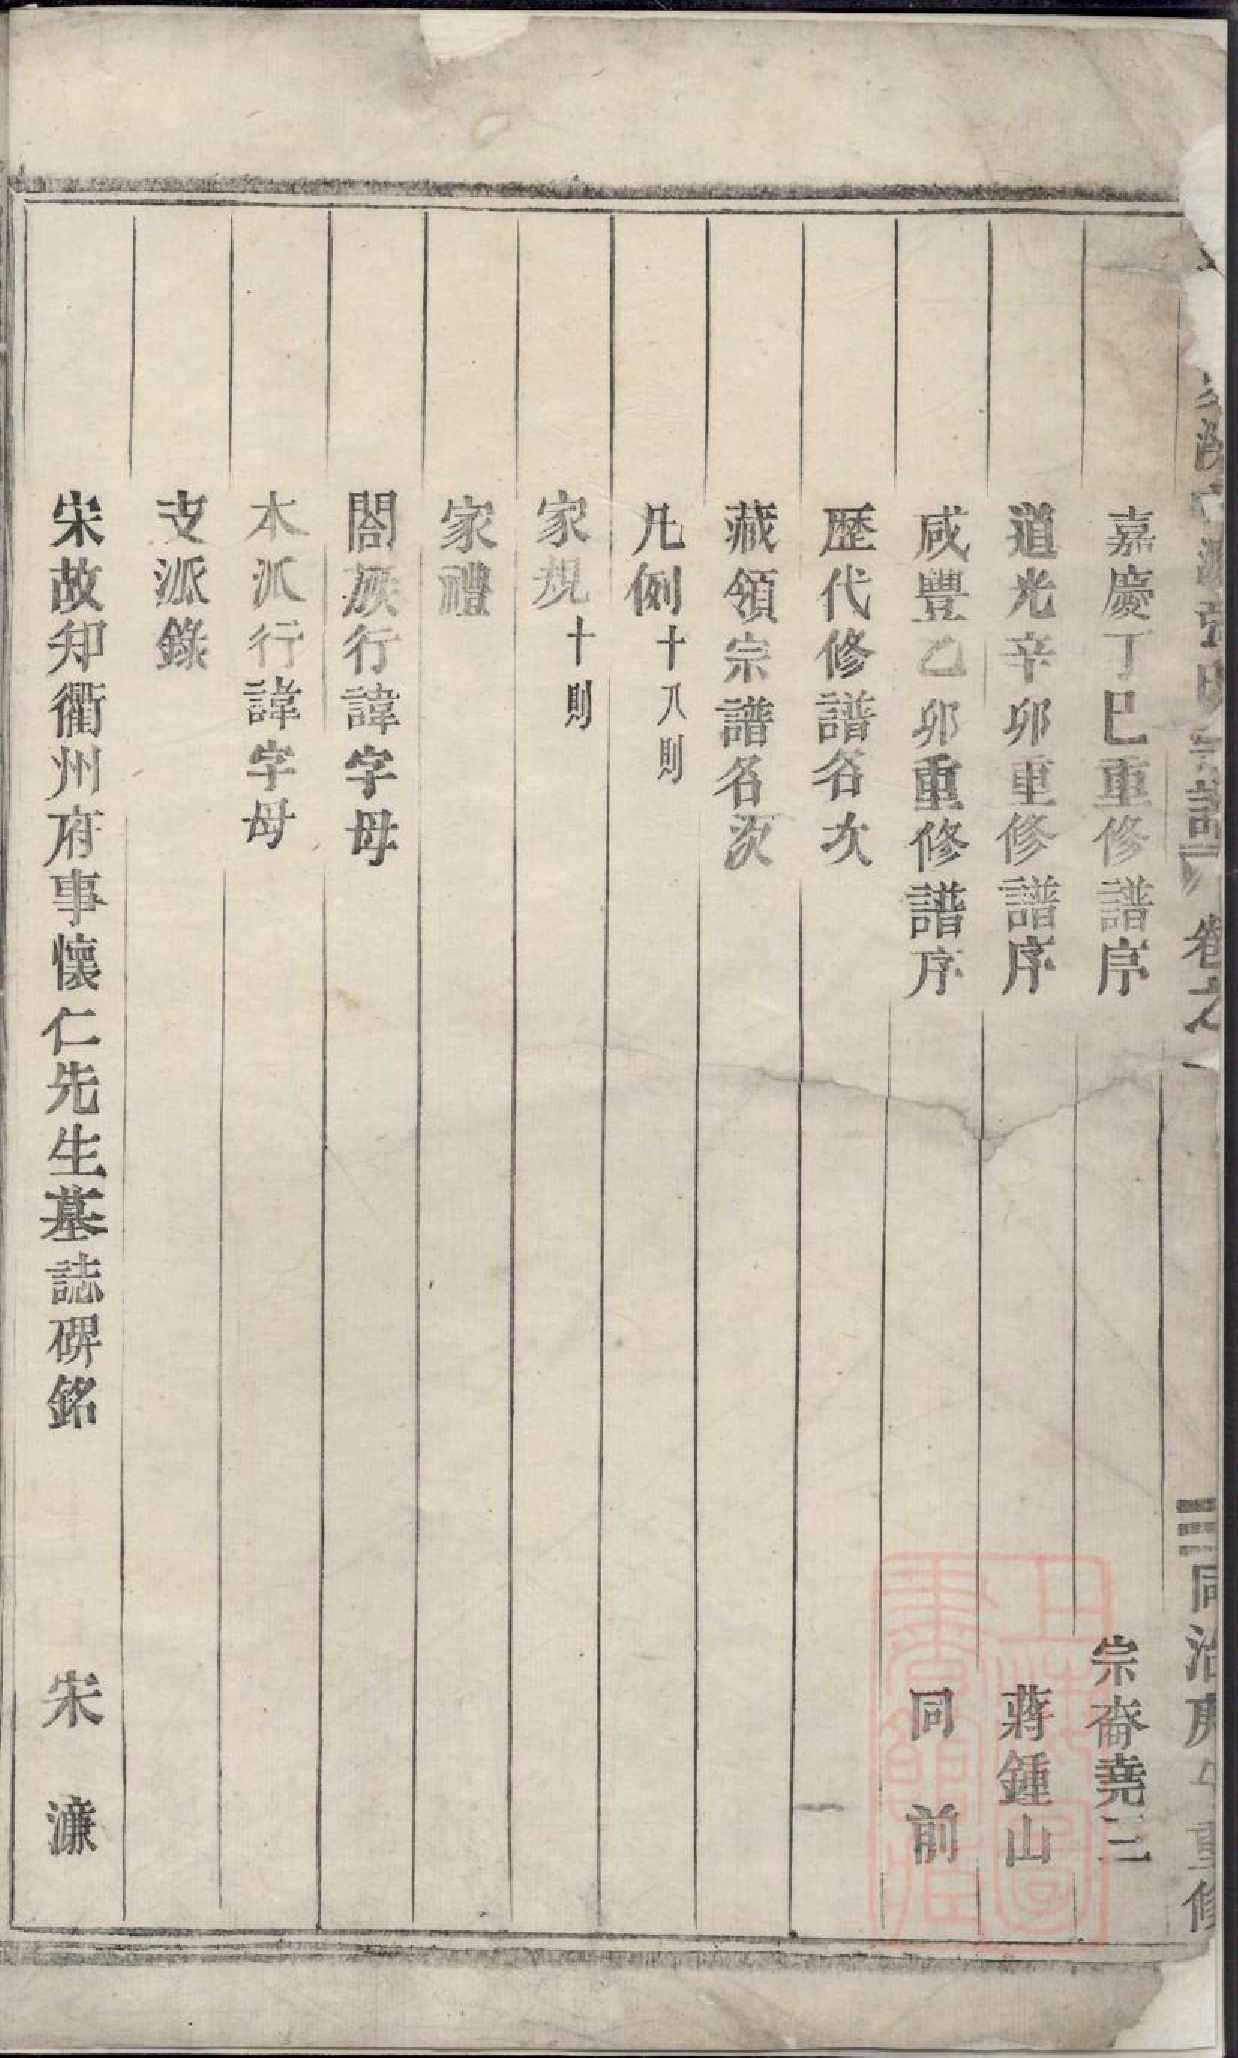 宗譜 卷之一 同治庚午重修
嘉慶丁巳重修譜序 宗裔堯三
道光辛卯重修譜序 蔣鍾山
咸豐乙卯重修譜序 同前
歷代修譜名次
藏領宗譜名次
凡例十八則
家規十則
家禮
閤族行諱字母
本派行諱字母
支派錄
宋故知衢州府事懷仁先生墓誌碑銘 宋濂
上海圖書館藏